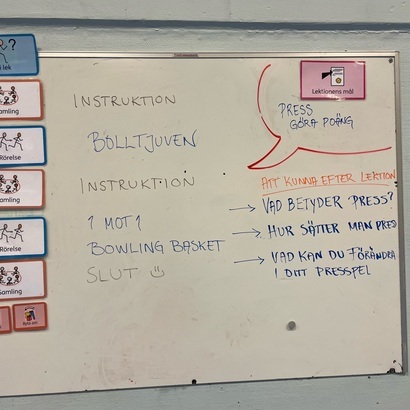 ? 
lek
INSTRUKTION
Samling
BOLLTJUVEN
Rörelse
INSTRUKTION
Samling
1 MOT 1
Rörelse
BOWLING BASKET
Samling
SLUT
Lektionens mål
PRESS
GÖRA POÄNG
ATT KUNNA EFTER LEKTION
→ VAD BETYDER PRESS?
→ HUR SÄTTER MAN PRESS
→ VAD KAN DU FÖRÄNDRA
I DITT PRESSPEL